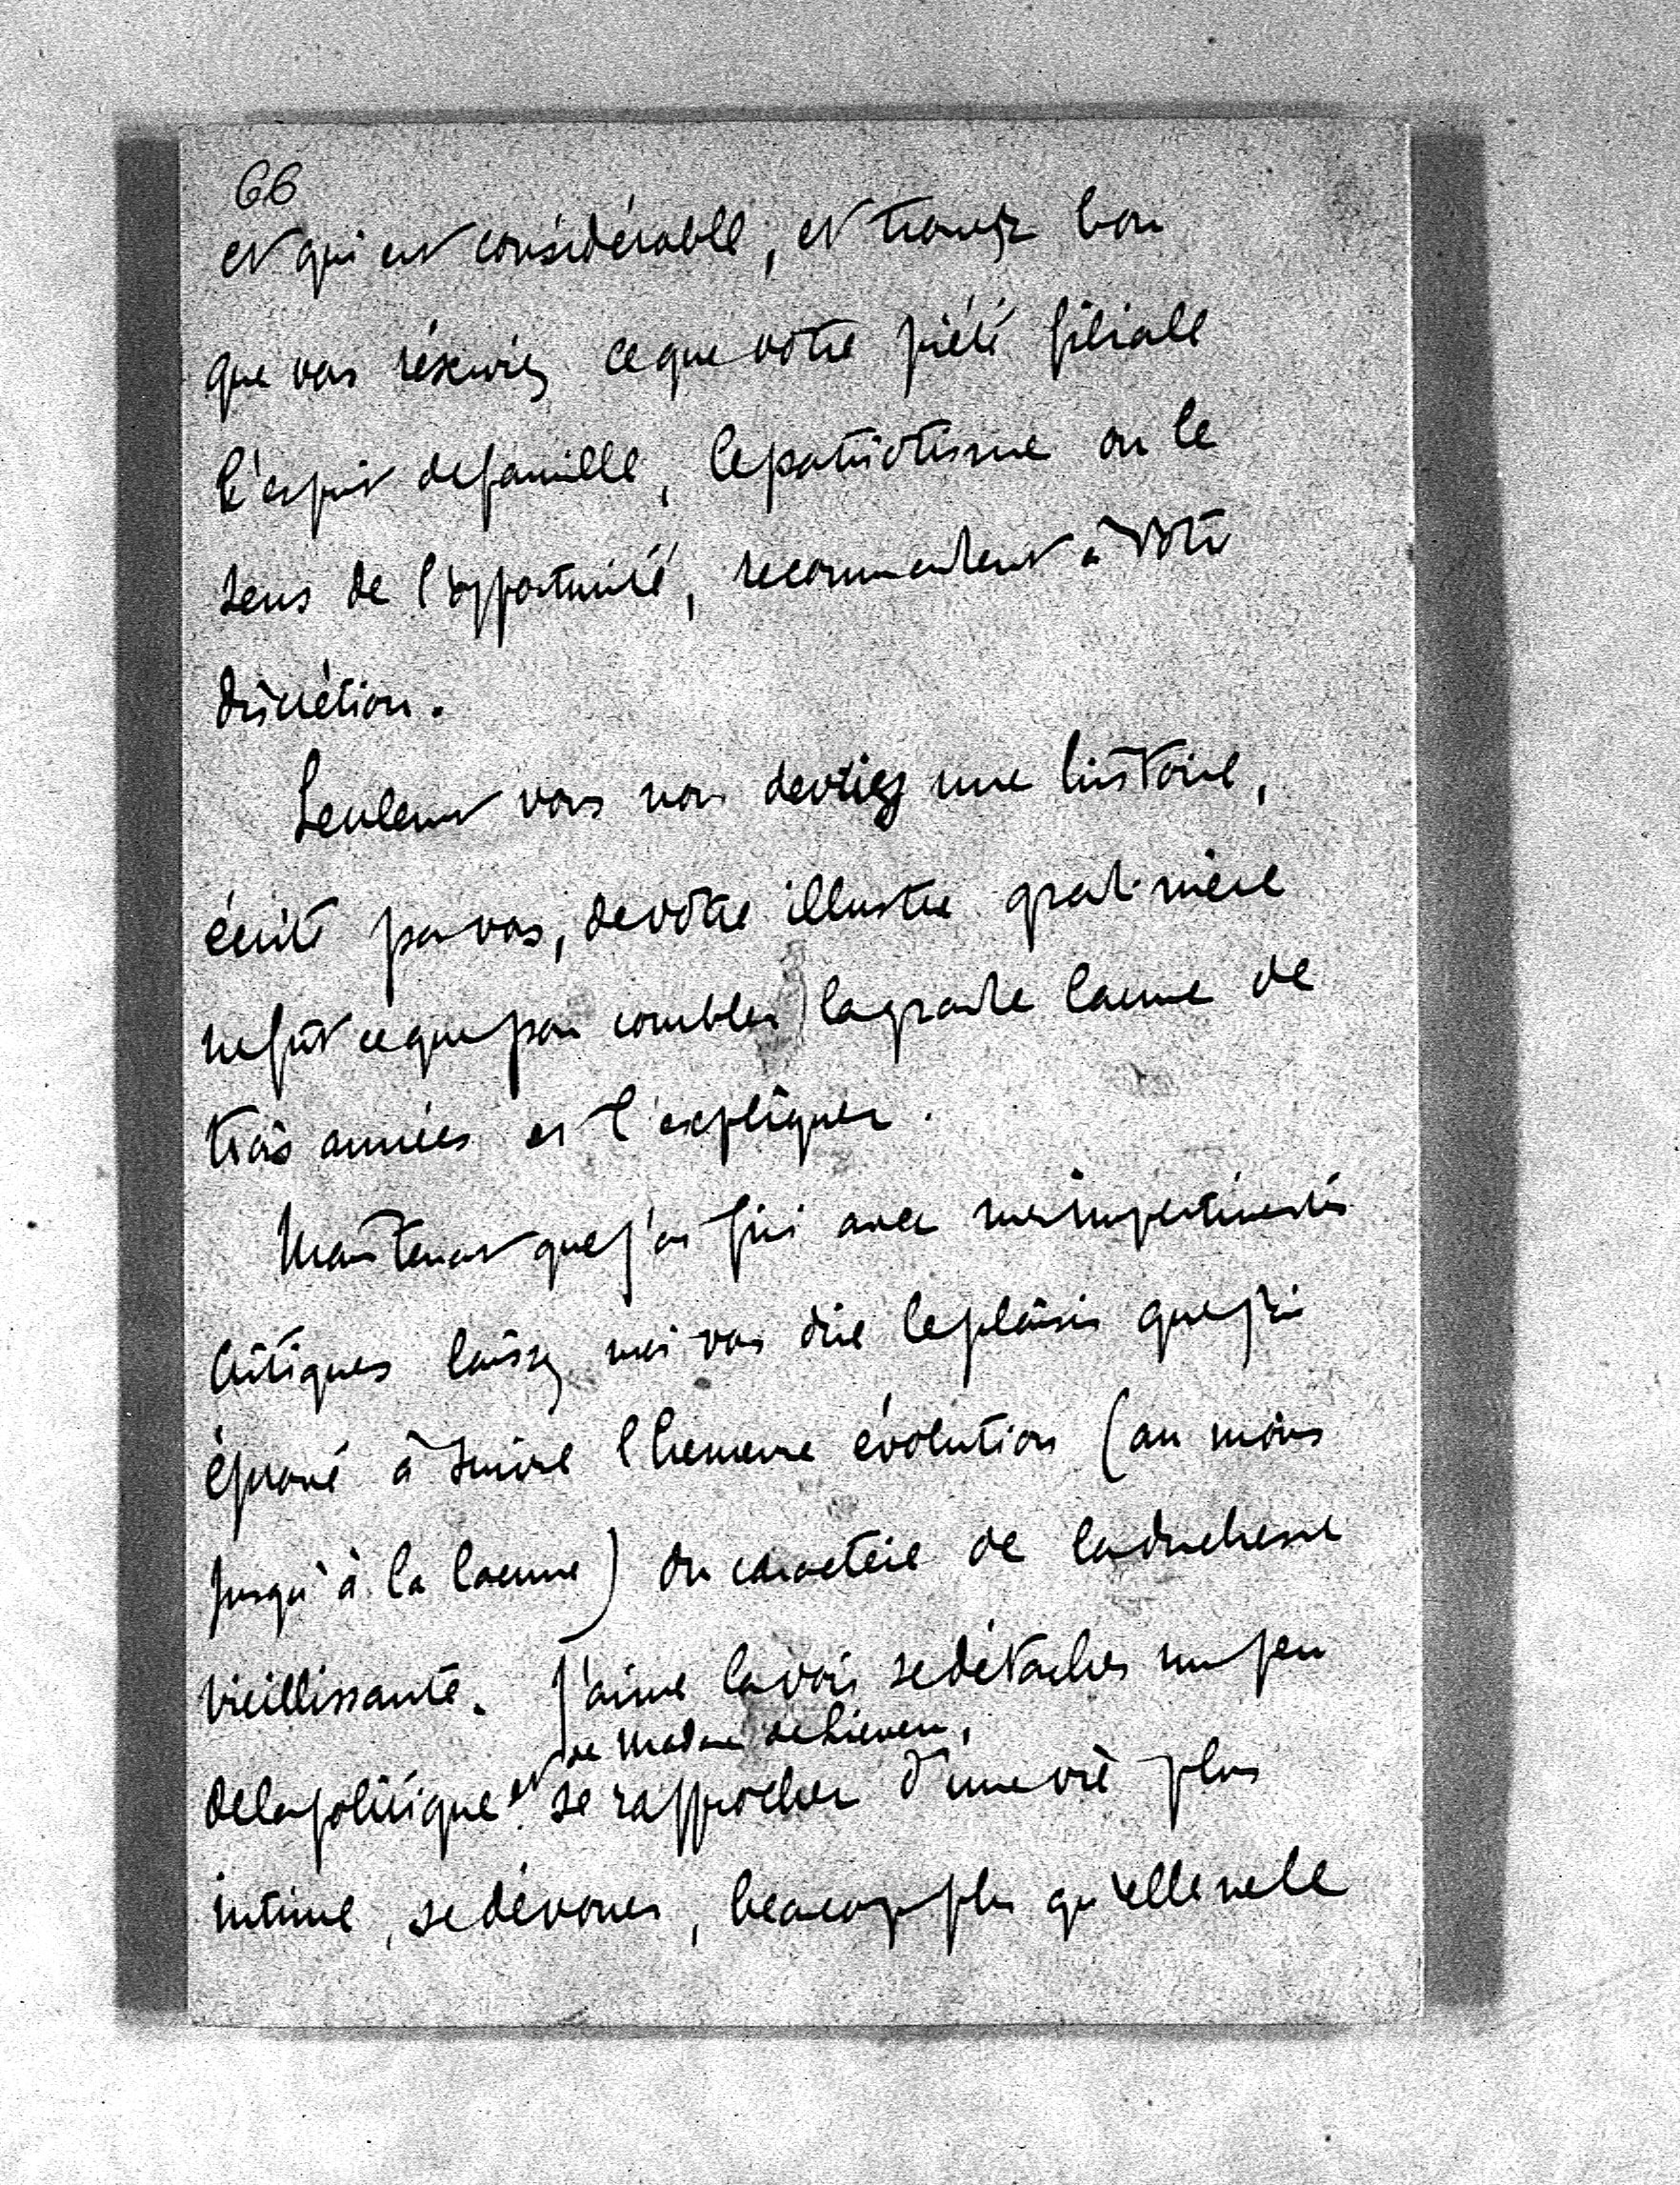 66
et qui est considérable, et trouver bon
que vous réserviez ce que votre piété filiale
l'esprit de famille, le patriotisme ou le
sens de l'opportunité, recommandent à votre
discrétion.
Seulement vous nous devriez une histoire,
écrite par vous, de votre illustre grand'mère
ne fût ce que pour combler la grande lacune de
trois années et l'expliquer.
Maintenant que j'ai fini avec mes impertinentes
critiques laissez moi vous dire le plaisir que j'ai
éprouvé à suivre l'heureuse évolution (au moins
jusqu'à la lacune) du caractère de la duchesse
vieillissante. J'aime la voir se détacher un peu
de la politique et de Madame de Lieven,
se rapprocher d'une vie plus
intime, se dévouer, beaucoup plus qu'elle ne le